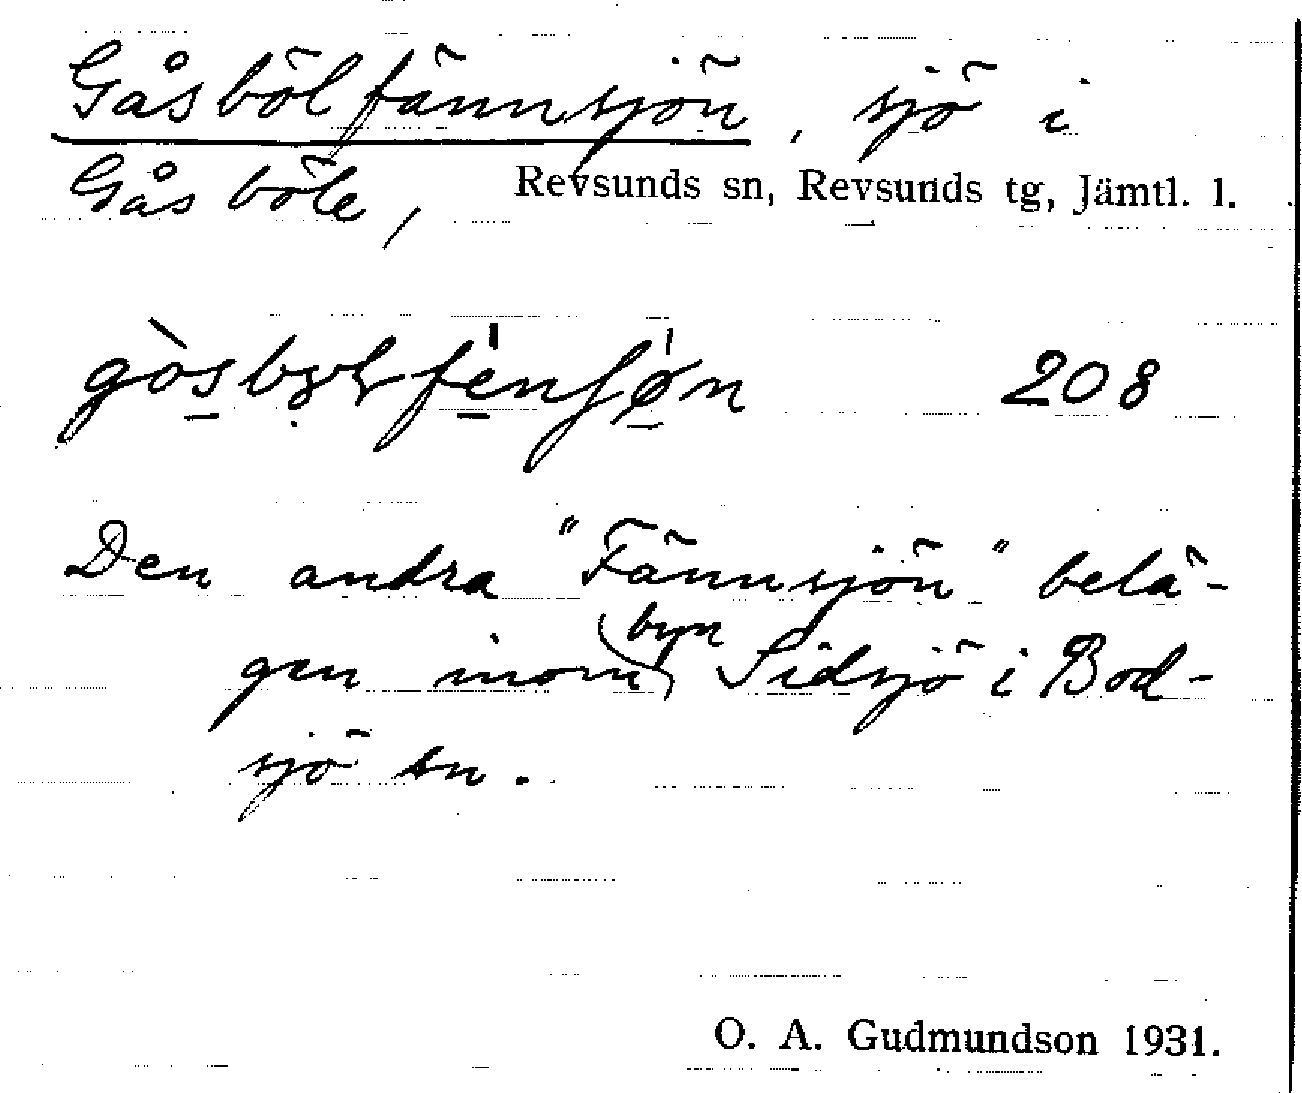 Gåsbölfännsjön, sjö i
Gåsböle, Revsunds sn, Revsunds tg, Jämtl. l.
208
Den andra "Fännsjön" belä-
gen inom byn Sidsjö i Bod-
sjö sn.
O. A. Gudmundson 1931.